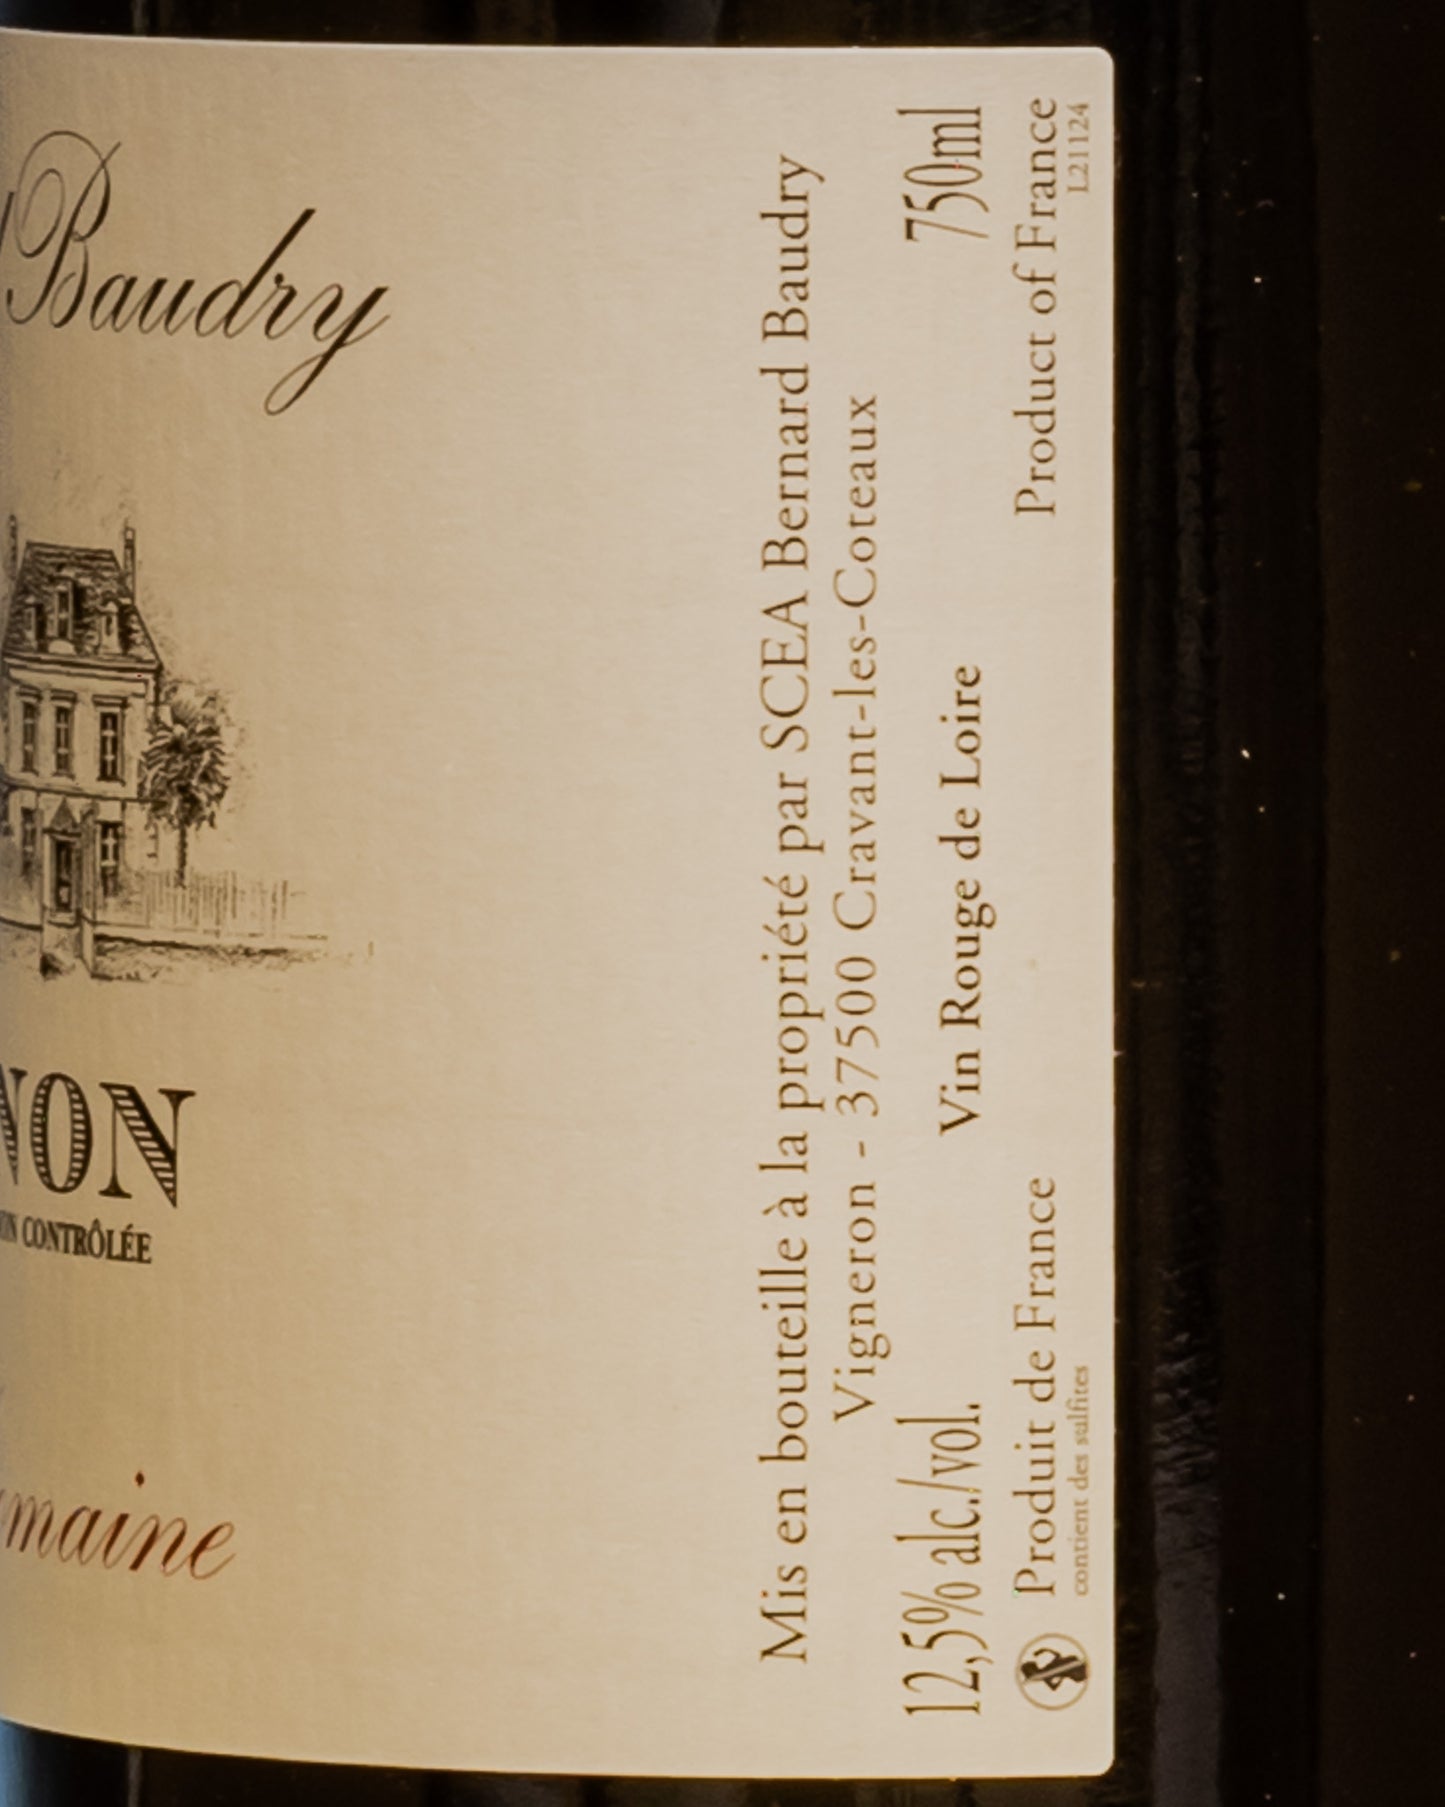 Baudry
NON
CONTRÔLÉE
maine
Mis en bouteille à la propriété par SCEA Bernard Baudry
Vigneron - 37500 Cravant-les-Coteaux
12,5% alc./vol.
750ml
Vin Rouge de Loire
Produit de France
Product of France
contient des sulfites
L21124